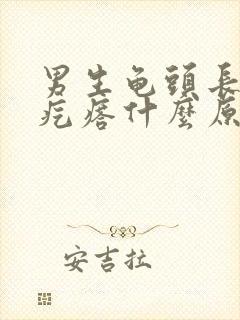 男生龟頭長
疙瘩什麼原
安吉拉